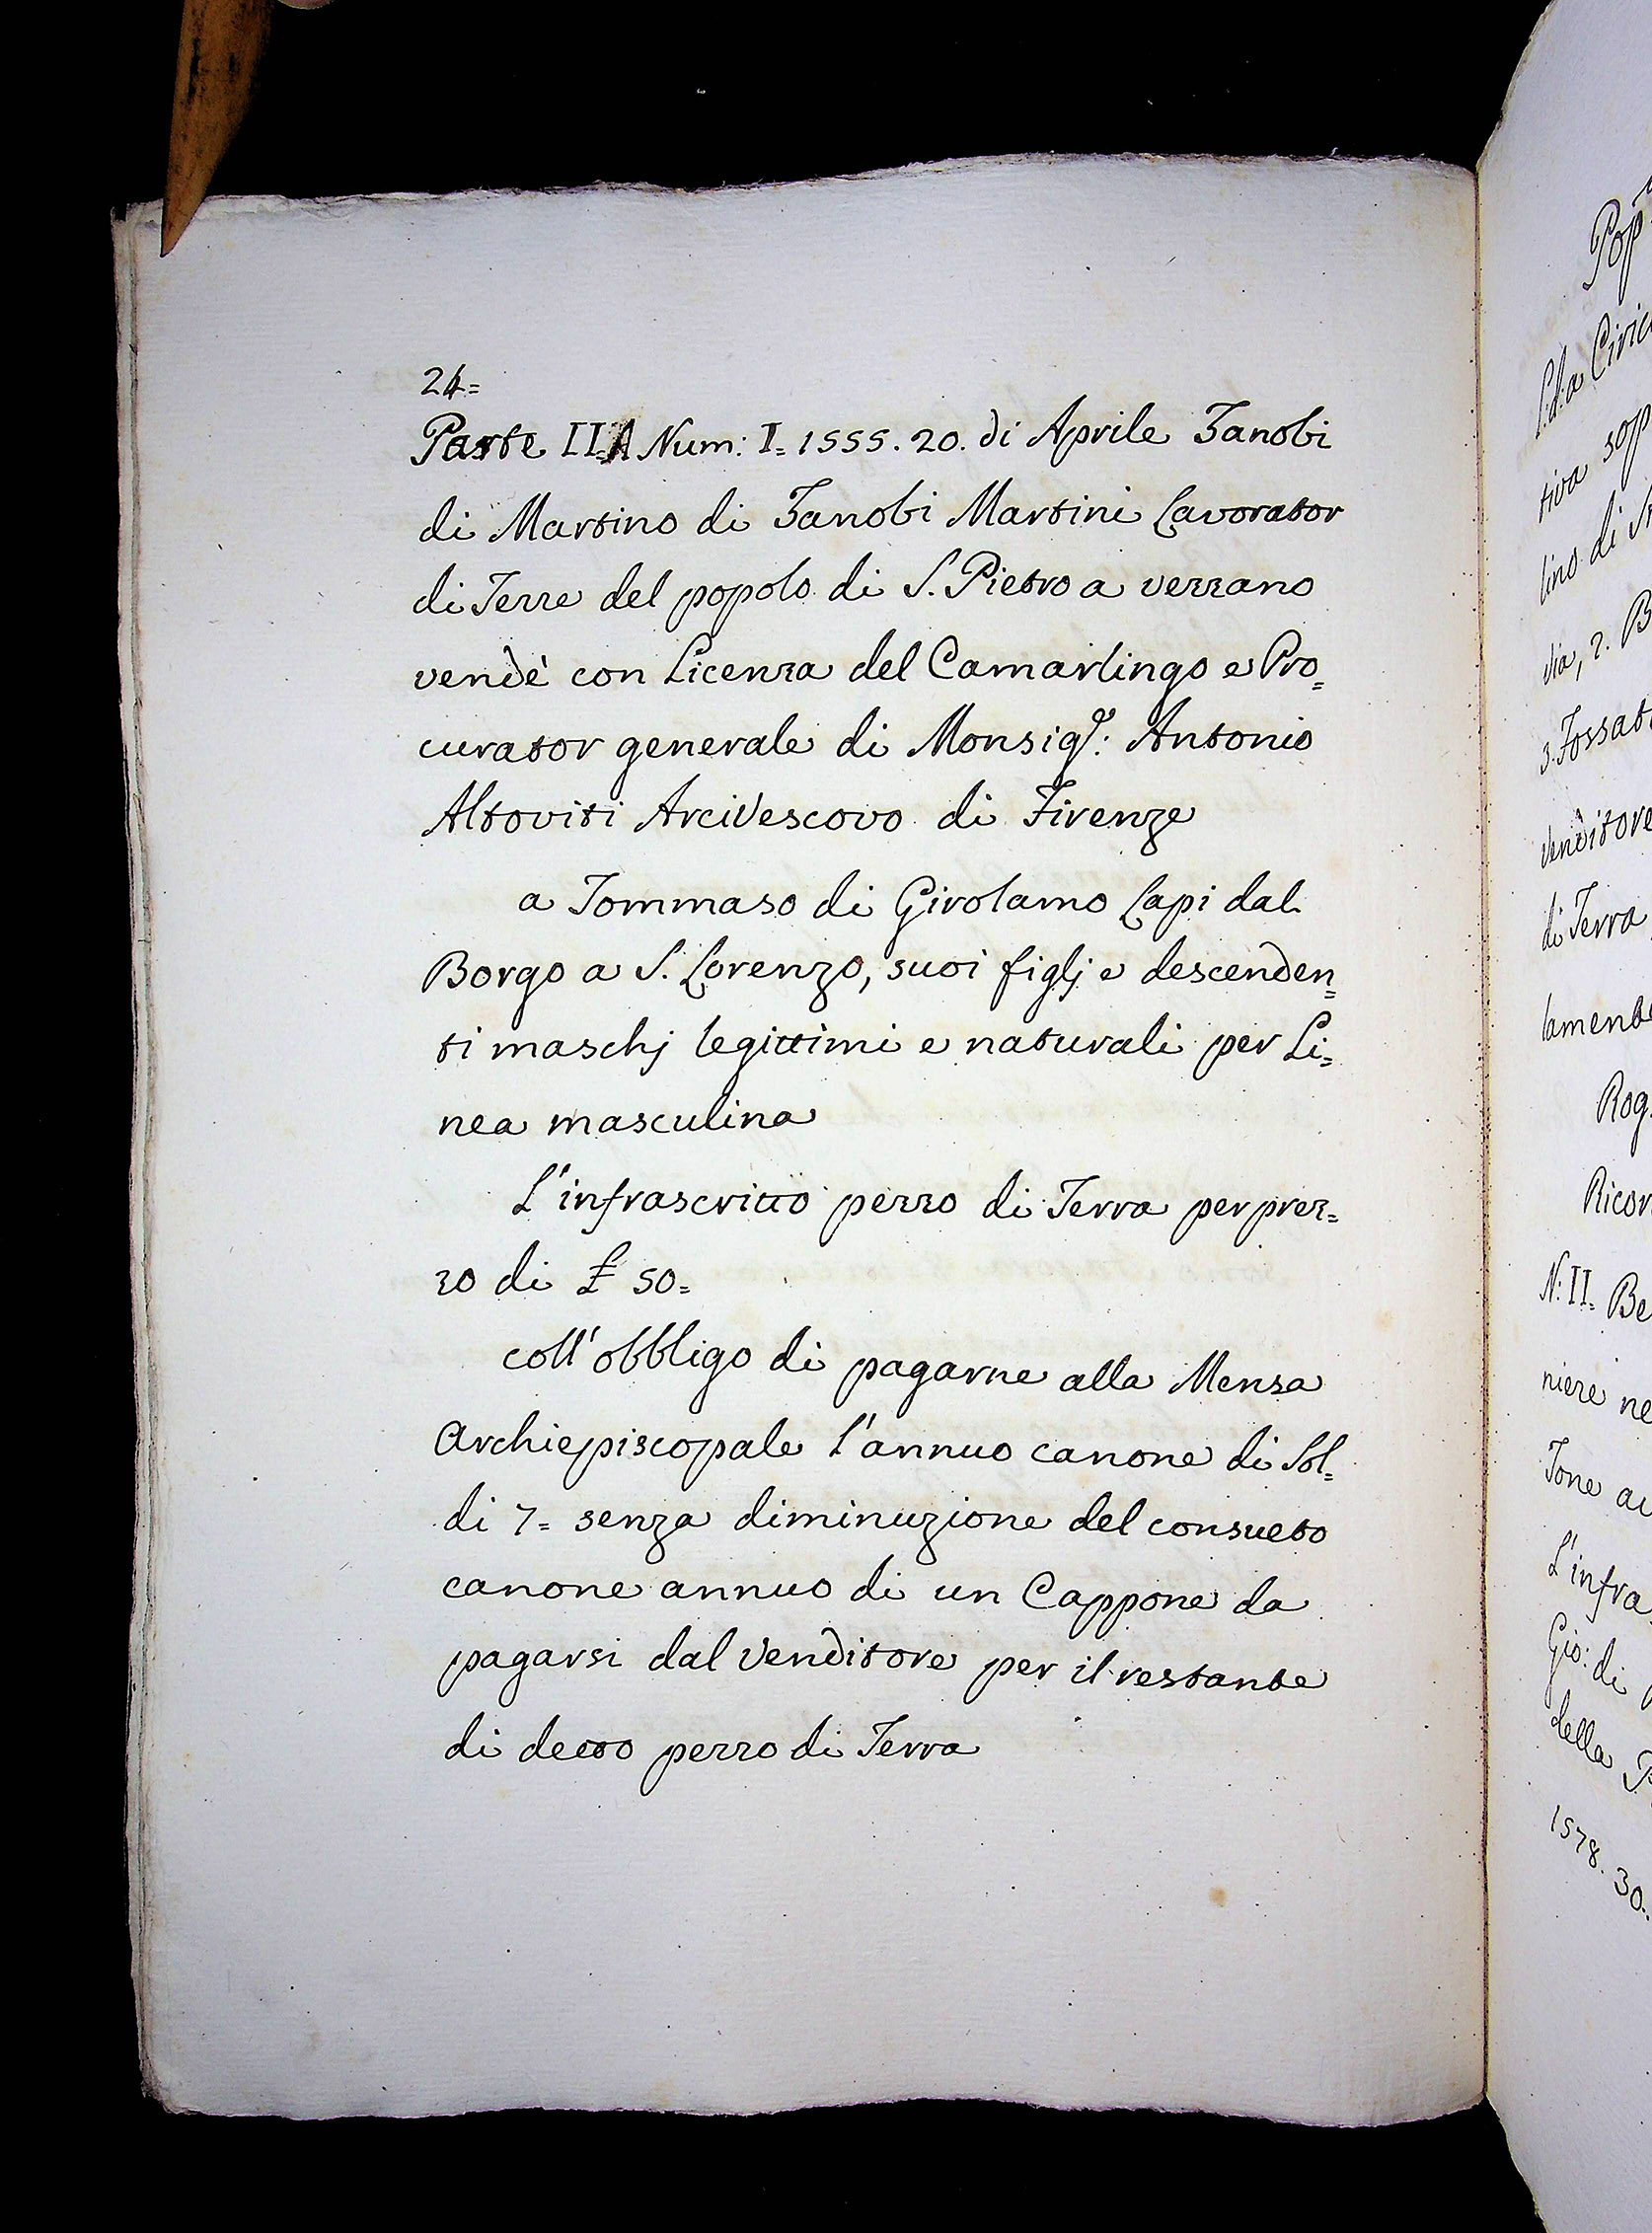 24=
Parte II.A Num: I= 1555. 20. di Aprile Zanobi
di Martino di Zanobi Martini Lavorator
di Terre del popolo di S. Pietro a vezzano
vendè con Licenza del Camarlingo e Pro=
curator generale di Monsigr: Antonio
Altoviti Arcivescovo di Firenze
a Tommaso di Girolamo Lapi dal
Borgo a S. Lorenzo, suoi figlj e descenden=
ti maschj legittimi e naturali per Li=
nea masculina
L'infrascritto pezzo di Terra per prez=
zo di £ 50=
coll'obbligo di pagarne alla Mensa
Archiepiscopale l'annuo canone di Sol=
di 7= senza diminuzione del consueto
canone annuo di un Cappone da
pagarsi dal Venditore per il restante
di detto pezzo di Terra
Pop
S.d.a Civic
tiva sop
lino di
dia, 2. B
3. Fossat
Venditore
di Terra
lamente
Rog
Ricor
N: II= Be
niere ne
Tone au
L'infra
Gio: di
della P
1578. 30.